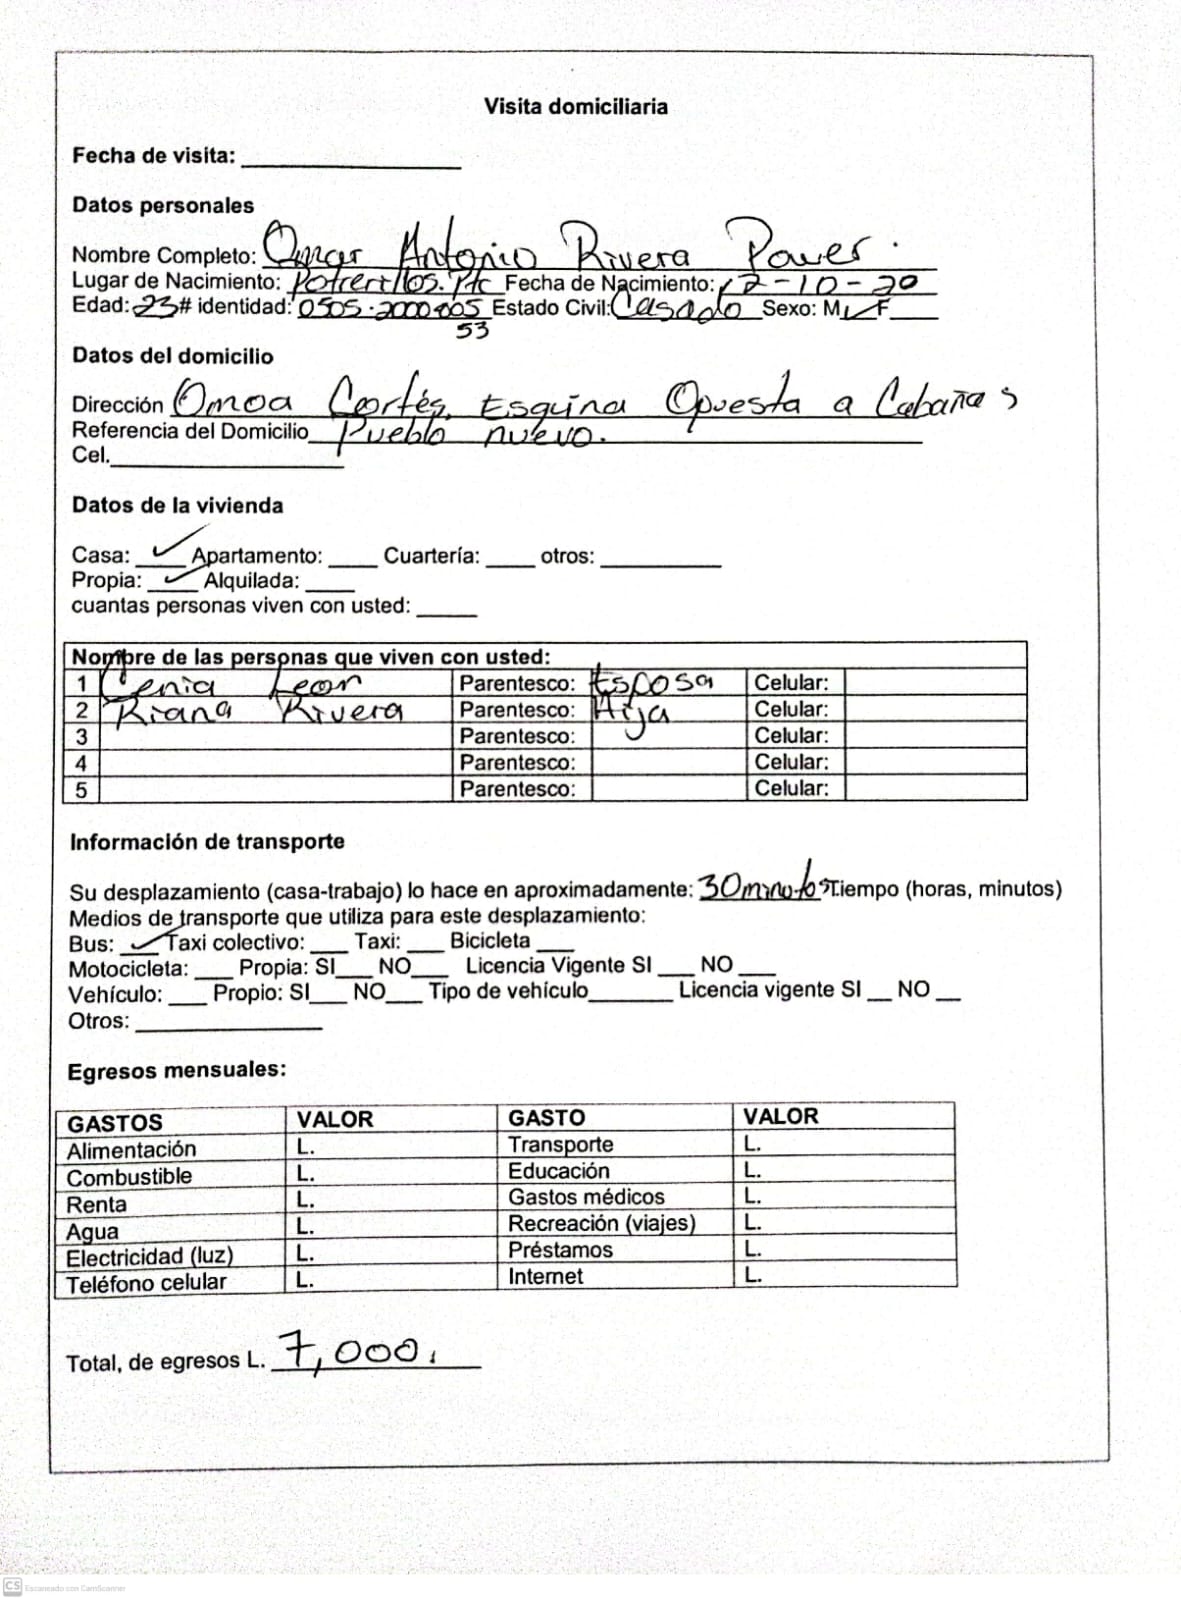 Visita domiciliaria
Fecha de visita: ____________
Datos personales
Nombre Completo: Omar Antonio Rivera Power.
Lugar de Nacimiento: Potrerillos. Fecha de Nacimiento: 12-10-20
Edad: 23 # identidad: 0505-2000-005 Estado Civil: Casado Sexo: M ✓ F____
53
Datos del domicilio
Dirección Omoa Cortés, Esquina Opuesta a Cabañas
Referencia del Domicilio Pueblo nuevo.
Cel.____________
Datos de la vivienda
Casa: ✓ Apartamento: ____ Cuartería: ____ otros: ____________
Propia: ✓ Alquilada: ____
cuantas personas viven con usted: _____
Nombre de las personas que viven con usted:
1 Cenia Leon Parentesco: Esposa Celular:
2 Riana Rivera Parentesco: Hija Celular:
3 Parentesco: Celular:
4 Parentesco: Celular:
5 Parentesco: Celular:
Información de transporte
Su desplazamiento (casa-trabajo) lo hace en aproximadamente: 30 minutos Tiempo (horas, minutos)
Medios de transporte que utiliza para este desplazamiento:
Bus: ✓ Taxi colectivo: ___ Taxi: ___ Bicicleta ___
Motocicleta: ___ Propia: SI___ NO___ Licencia Vigente SI ___ NO ___
Vehículo: ___ Propio: SI___ NO___ Tipo de vehículo_______ Licencia vigente SI __ NO __
Otros: ____________
Egresos mensuales:
GASTOS VALOR GASTO VALOR
Alimentación L. Transporte L.
Combustible L. Educación L.
Renta L. Gastos médicos L.
Agua L. Recreación (viajes) L.
Electricidad (luz) L. Préstamos L.
Teléfono celular L. Internet L.
Total, de egresos L. 7,000.
CS Escaneado con CamScanner